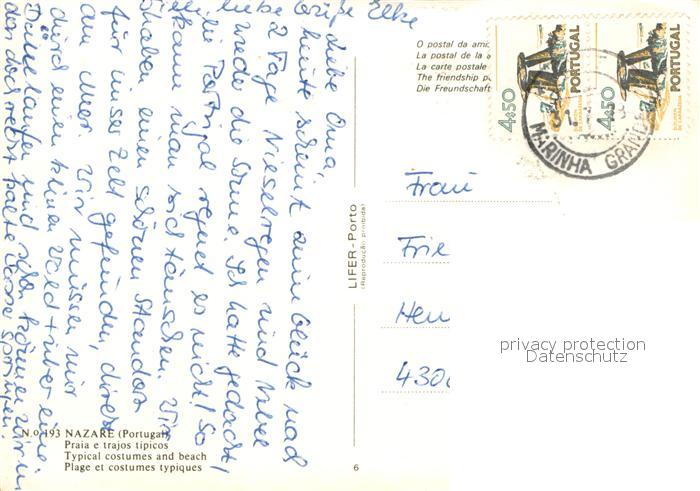 Liebe Oma,
heute scheint zum Glück nach
2 Tage Nieselregen und Nebel
wieder die Sonne. Ich hatte gedacht,
in Portugal regnet es nicht! So
kann man sich täuschen. Wir
haben einen schönen Standort
für unser Zelt gefunden, direkt
am Meer. Wir müssen nur
durch einen kleinen Wald + über eine
Düne laufen und schon können wir in
das aber recht kalte Wasser springen.
Liebe
Grüße Elke
O postal da ami
La postal de la a
La carte postale
The friendship p
Die Freundschaft
4$50
PORTUGAL
4$50
PORTUGAL
MARINHA GRANDE
Frau
Frie
Hen
430
LIFER-Porto
(Reprodução proibida)
privacy protection
Datenschutz
N.o 193 NAZARE (Portugal)
Praia e trajos típicos
Typical costumes and beach
Plage et costumes typiques
6